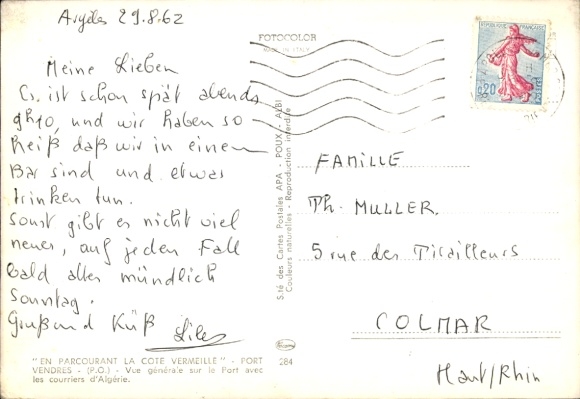 Argelès 29.8.62
Meine Lieben
Es ist schon spät abends
9h40, und wir haben so
heiß daß wir in einem
Bar sind und etwas
trinken tun.
Sonst gibt es nicht viel
neues, auf jeden Fall
bald alles mündlich
Sonntag.
Gruß und Küß
FOTOCOLOR
MADE IN ITALY
REPUBLIQUE FRANÇAISE
0,20
FAMILLE
Th. MULLER.
5 rue des Tirailleurs
COLMAR
Haut/Rhin
S.té des Cartes Postales APA - POUX - ALBI
Couleurs naturelles - Reproduction interdite
"EN PARCOURANT LA COTE VERMEILLE" - PORT
VENDRES - (P.O.) - Vue générale sur le Port avec
les courriers d'Algérie.
284